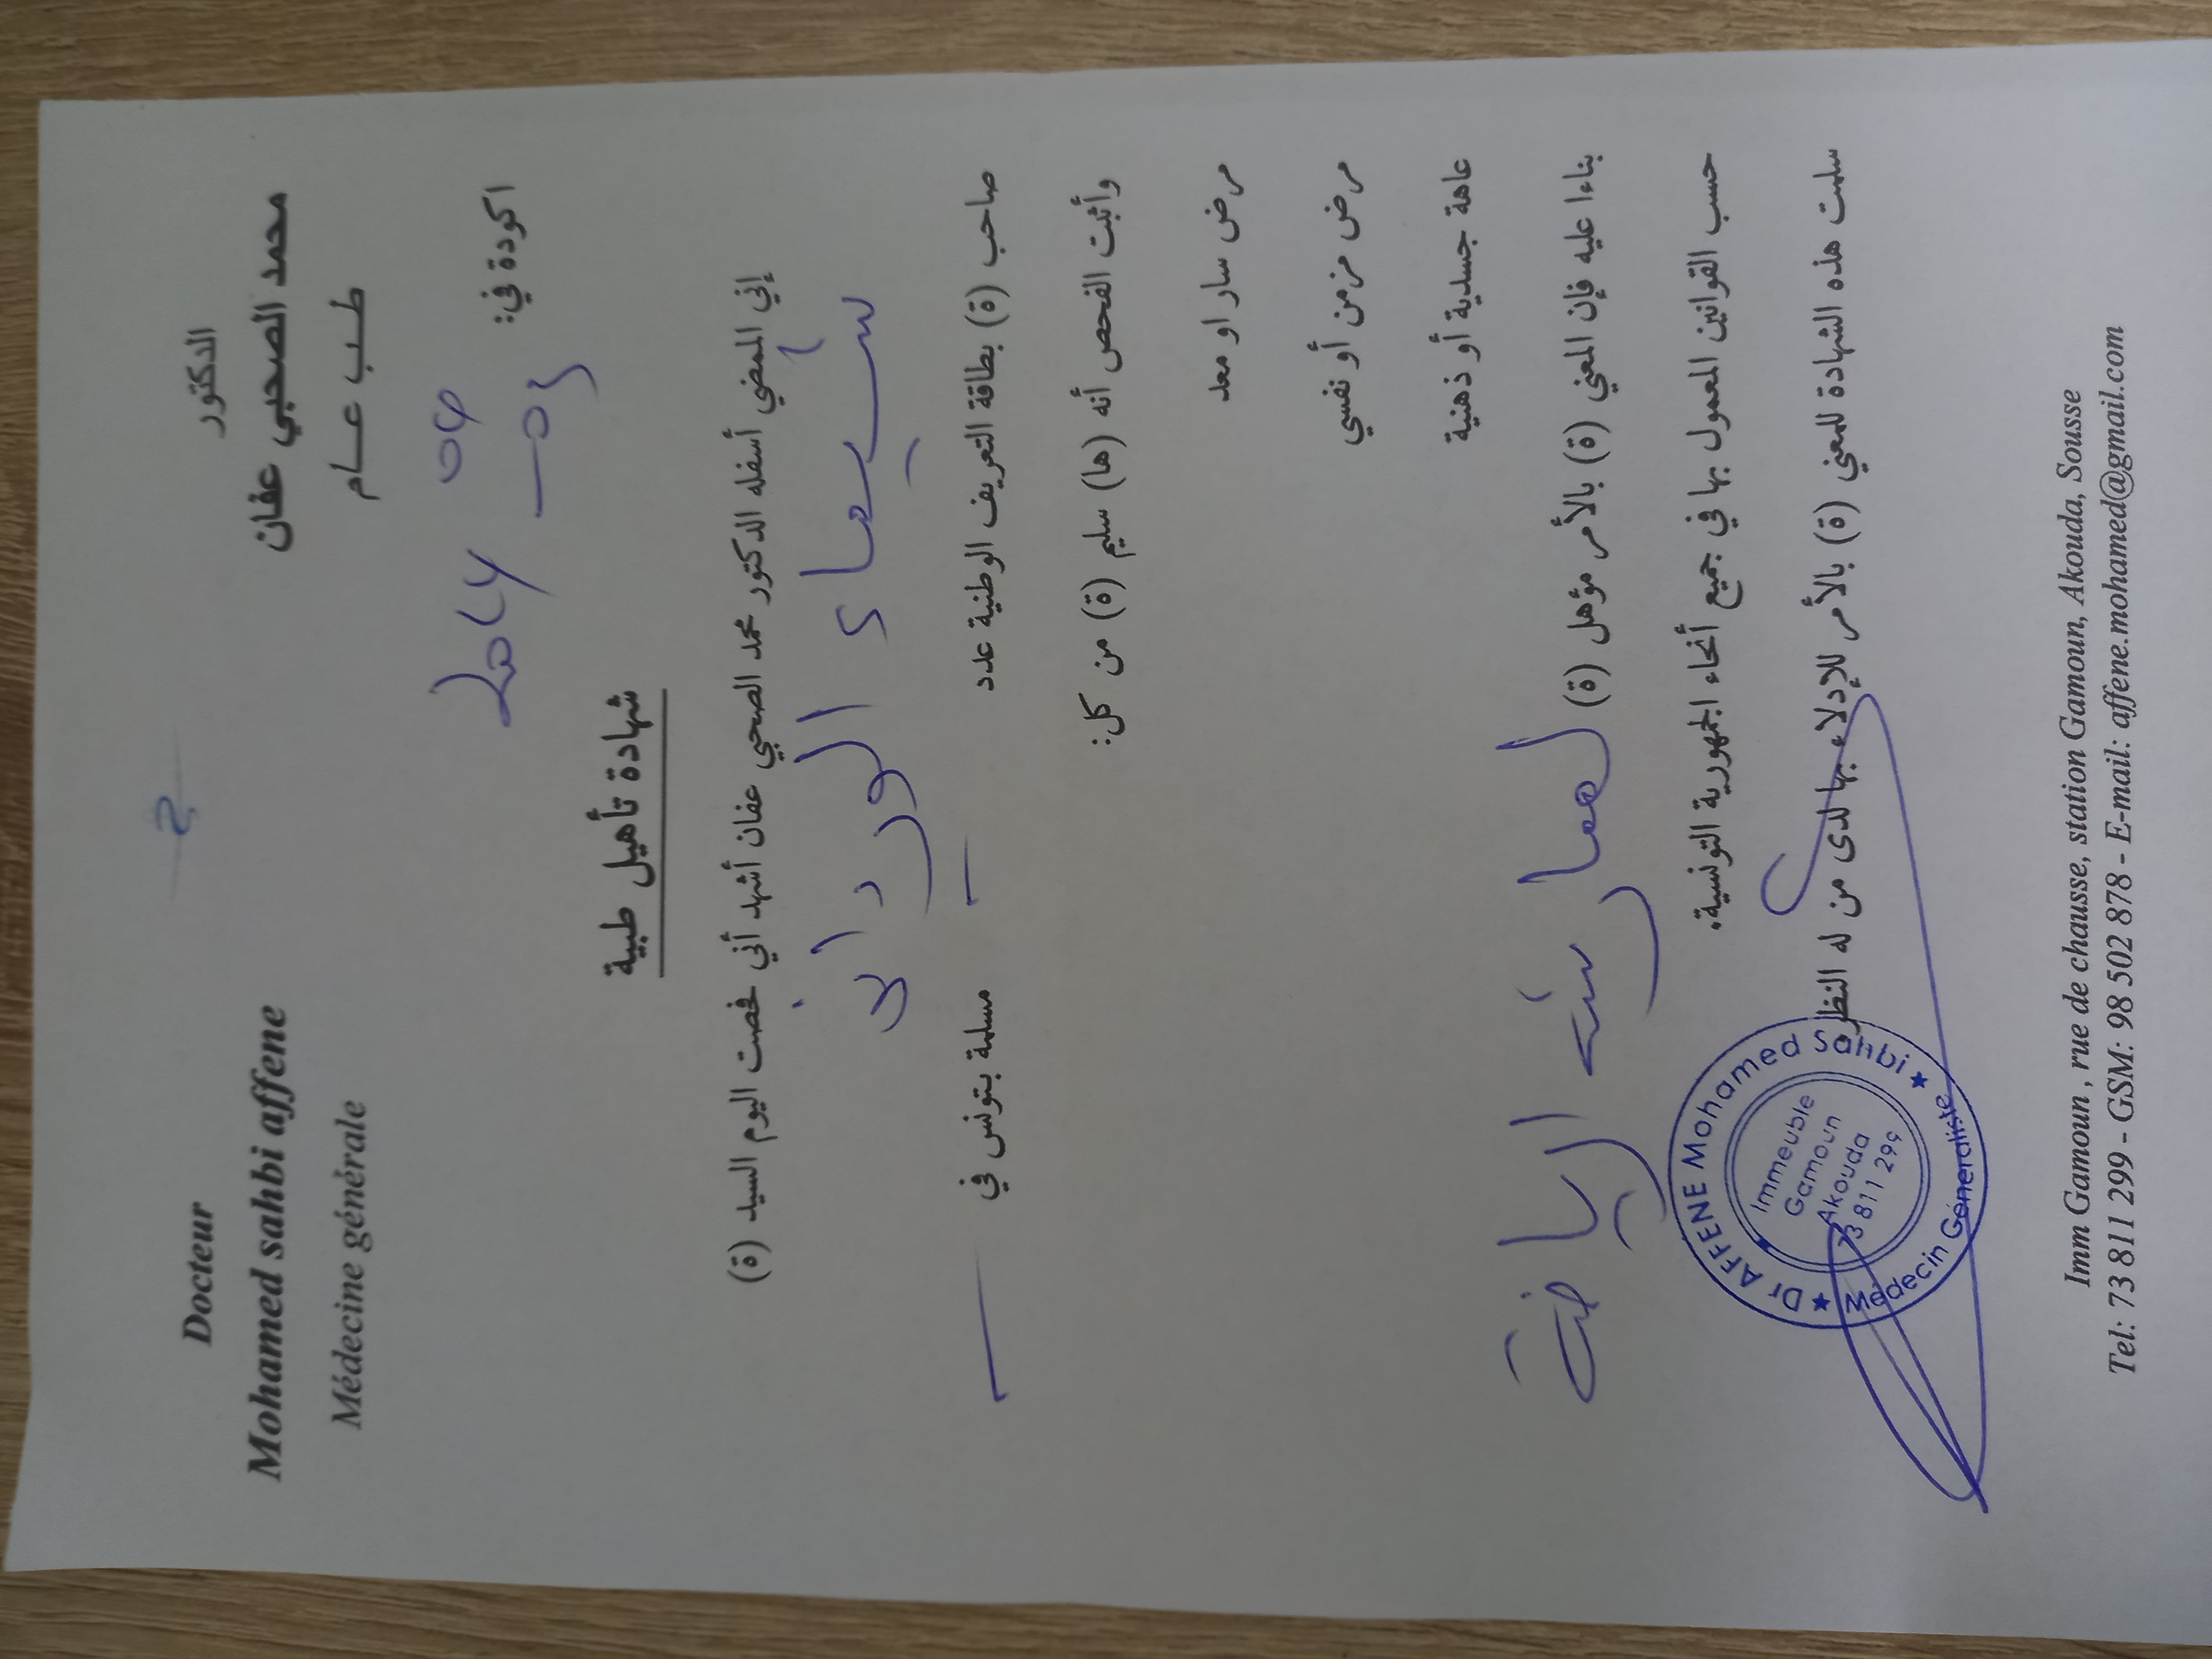 Docteur
Mohamed sahbi affene
Médecine générale
الدكتور
محمد الصحبي عفان
طـب عـــام
اكودة في:
شهادة تأهيل طبية
إني الممضي أسفله الدكتور محمد الصحبي عفان أشهد أني فحصت اليوم السيد (ة)
الورداني
صاحب (ة) بطاقة التعريف الوطنية عدد — مسلمة بتونس في —
وأثبت الفحص أنه (ها) سليم (ة) من كل:
مرض سار او معد
مرض مزمن أو نفسي
عاهة جسدية أو ذهنية
بناءا عليه فإن المعني (ة) بالأمر مؤهل (ة) لممارسة الرياضة
حسب القوانين المعمول بها في جميع أنحاء الجمهورية التونسية.
سلمت هذه الشهادة للمعني (ة) بالأمر للإدلاء بها لدى من له النظر.
Dr AFFENE Mohamed Sahbi
Immeuble
Gamoun
Akouda
73 811 299
Médecin Généraliste
Imm Gamoun , rue de chausse, station Gamoun, Akouda, Sousse
Tel: 73 811 299 - GSM: 98 502 878 - E-mail: affene.mohamed@gmail.com